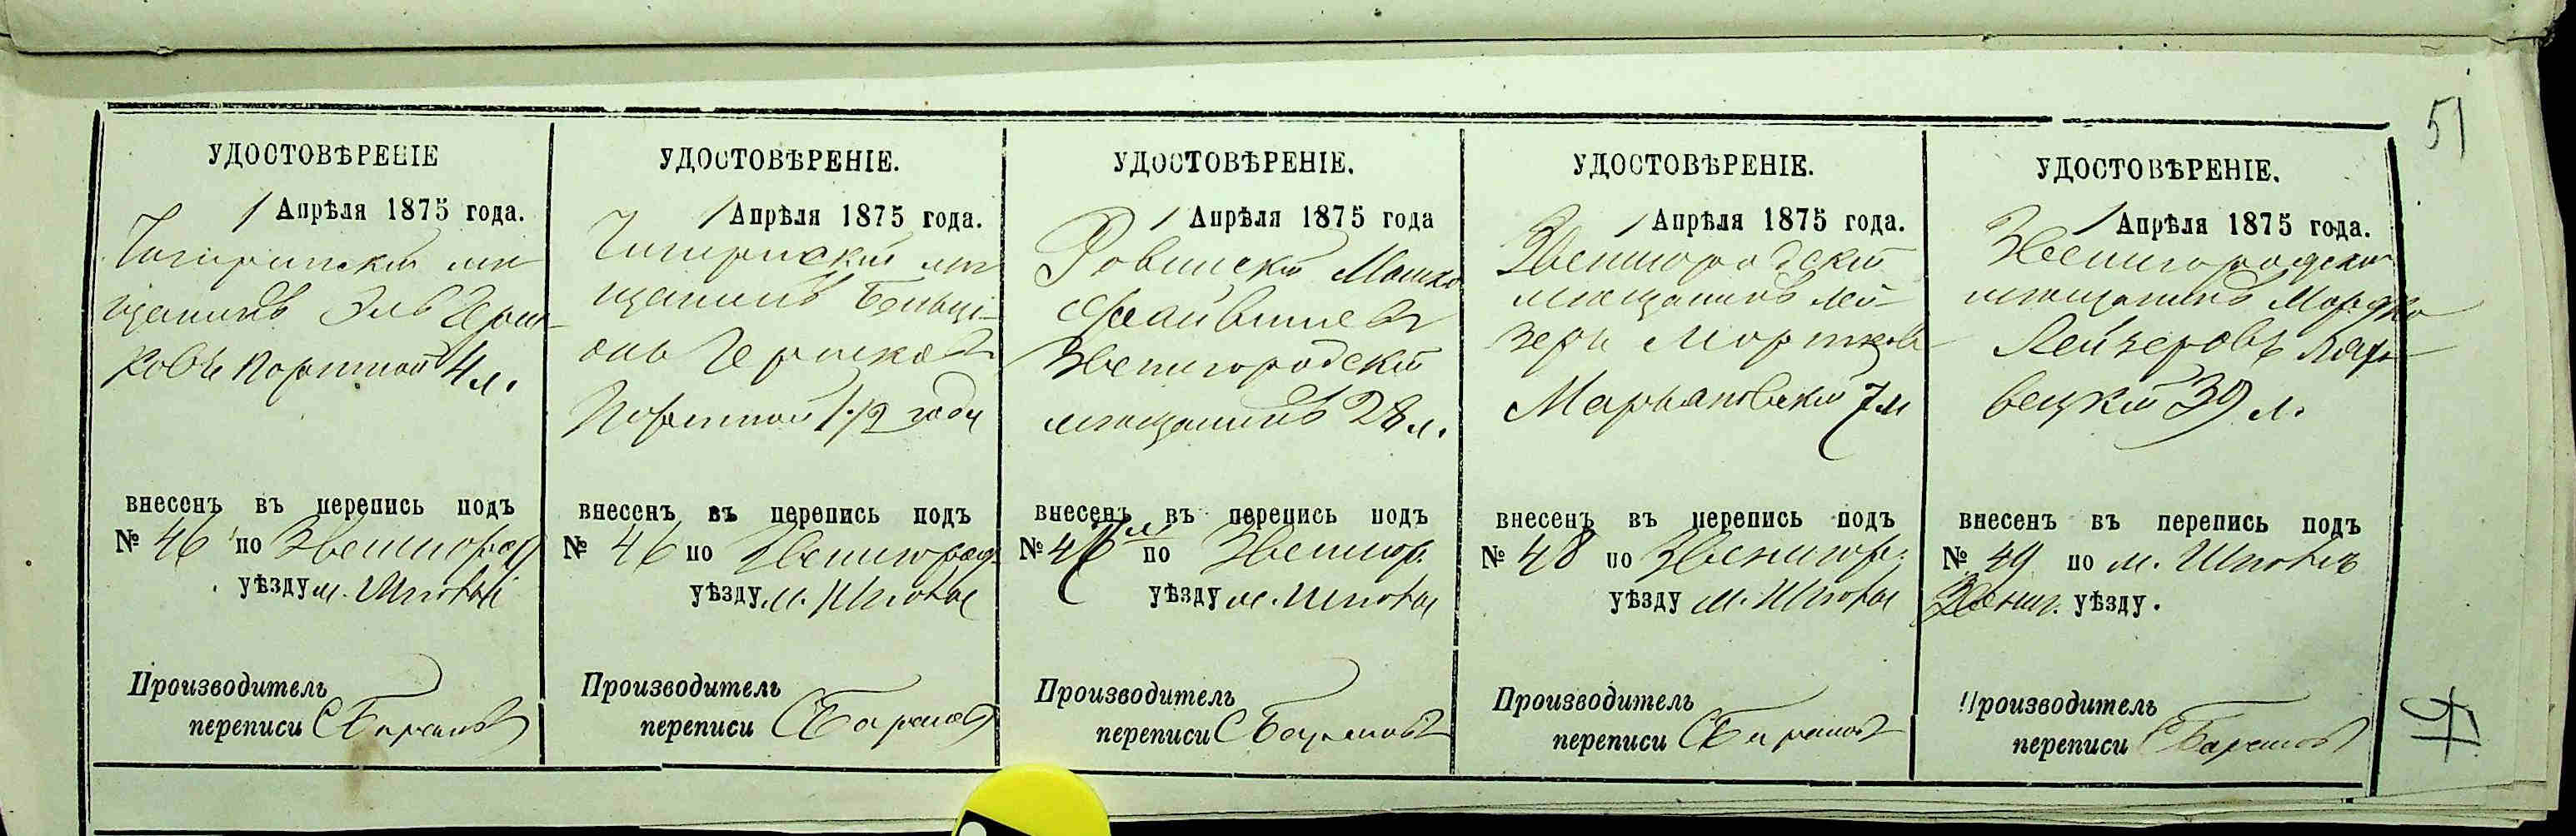 51
УДОСТОВѢРЕНІЕ
1 Апрѣля 1875 года.
Чигиринскій мѣ
щанинъ Эль Герш-
ковъ Портной 4 л.
внесенъ въ перепись подъ
№ 46 по Звенигород
уѣзду м. Шпола
Производитель
переписи С Барановъ
УДОСТОВѢРЕНІЕ.
1 Апрѣля 1875 года.
Чигиринскій мѣ
щанинъ Беньці-
онъ Гершковъ
Портной 1 1/2 года
внесенъ въ перепись подъ
№ 46 по Звенигород.
уѣзду м. Шпола
Производитель
переписи С Барановъ
УДОСТОВѢРЕНІЕ.
1 Апрѣля 1875 года
Ровинскій Мошко
Файвишевъ
Звенигородскій
мѣщанинъ 28 л.
внесенъ въ перепись подъ
№ 47 по Звенигор.
уѣзду м. Шпола
Производитель
переписи С Барановъ
УДОСТОВѢРЕНІЕ.
1 Апрѣля 1875 года.
Звенигородскій
мѣщанинъ Лей-
зеръ Мортков
Марьяновскій 7 л
внесенъ въ перепись подъ
№ 48 по Звенигор.
уѣзду м. Шпола
Производитель
переписи С Барановъ
УДОСТОВѢРЕНІЕ.
1 Апрѣля 1875 года.
Звенигородскій
мѣщанинъ Мордко
Лейзеровъ
39 л.
внесенъ въ перепись подъ
№ 49 по м. Шполѣ
Звениг. уѣзду.
Производитель
переписи С Барановъ